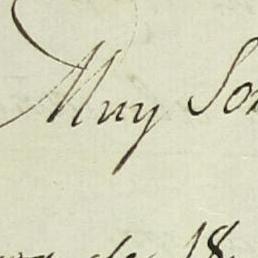 Muy So
de 18